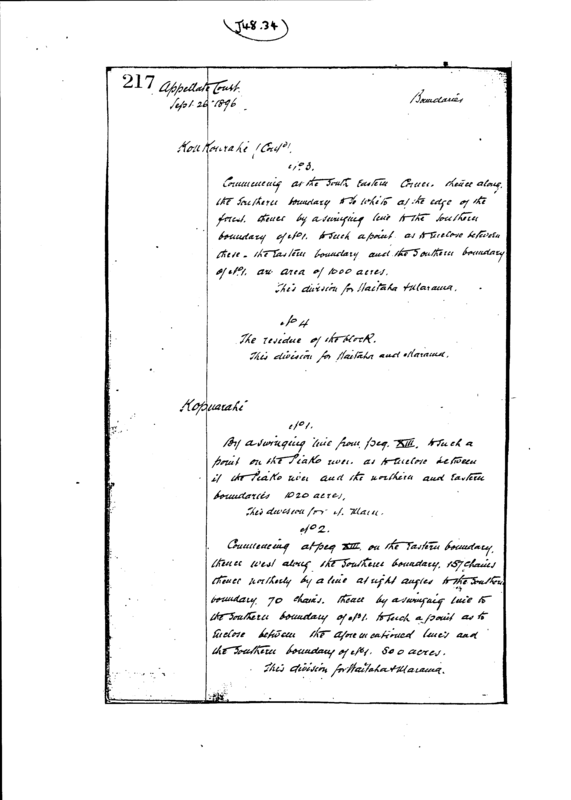 J48.34
217 Appellate Court.
Sept. 26 1896
Boundaries
(Cont'd).
No 3.
Commencing at the South Eastern Corner. thence along
the Southern boundary to White at the edge of the
forest. thence by a swinging line to the Southern
boundary of No 1. to such a point as to enclose between
these - the Eastern boundary and the Southern boundary
of No 1. an area of 1000 acres.
This division for Waitaha & Marama.
No 4
The residue of the block.
This division for Waitaha and Marama.
Kopuarahi
No 1.
By a swinging line from peg XIII. to such a
point on the Piako river. as to enclose between
it the Piako river and the northern and Eastern
boundaries 1020 acres.
This division for N. Maru.
No 2.
Commencing at peg XIII on the Eastern boundary.
thence west along the Southern boundary. 157 chains
thence northerly by a line at right angles to the Southern
boundary 70 chains. thence by a swinging line to
the Southern boundary of No 1. to such a point as to
enclose between the aforementioned lines and
the Southern boundary of No 1. 500 acres.
This division for Waitaha & Marama.